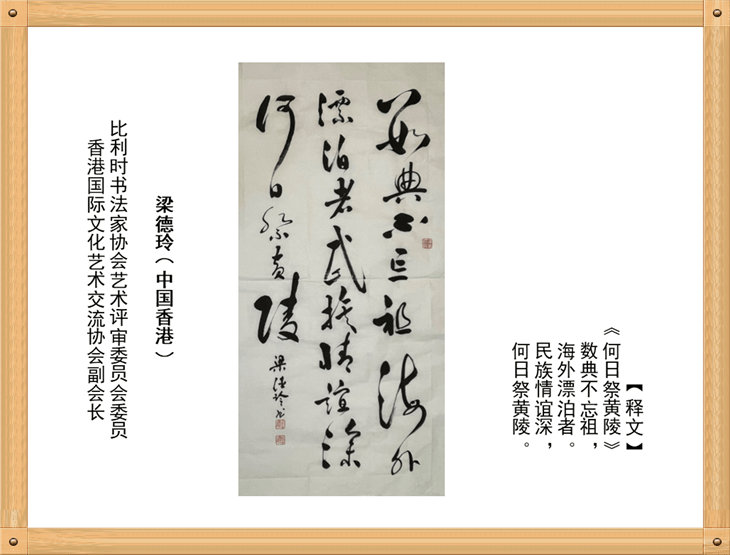 【释文】
《何日祭黄陵》
数典不忘祖，
海外漂泊者。
民族情谊深，
何日祭黄陵。
数典不忘祖海外
漂泊者民族情谊深
何日祭黄陵
梁德玲书
梁德玲（中国香港）
比利时书法家协会艺术评审委员会委员
香港国际文化艺术交流协会副会长